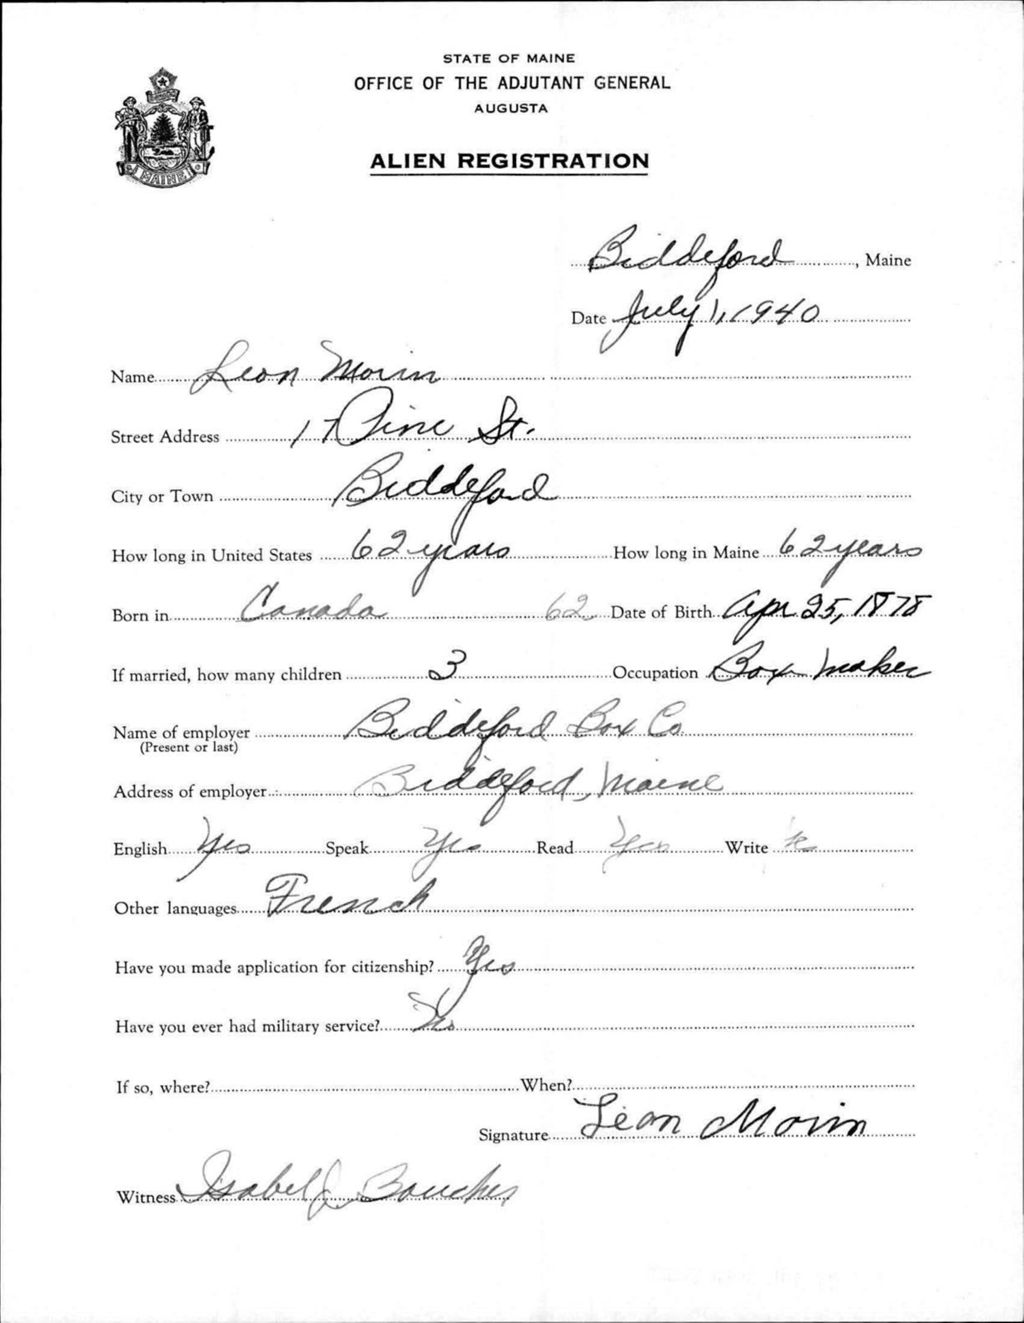 STATE OF MAINE
OFFICE OF THE ADJUTANT GENERAL
AUGUSTA
ALIEN REGISTRATION
MAINE
Biddeford, Maine
Date July 1, 1940
Name Leon Morin
Street Address 17 Pine St.
City or Town Biddeford
How long in United States 62 years How long in Maine 62 years
Born in Canada 62 Date of Birth Apr 25, 1878
If married, how many children 3 Occupation Box Maker
Name of employer Biddeford Box Co
(Present or last)
Address of employer Biddeford, Maine
English Yes Speak Yes Read Yes Write
Other languages French
Have you made application for citizenship? Yes
Have you ever had military service?
If so, where? When?
Signature Leon Morin
Witness Isabel J. Boucher